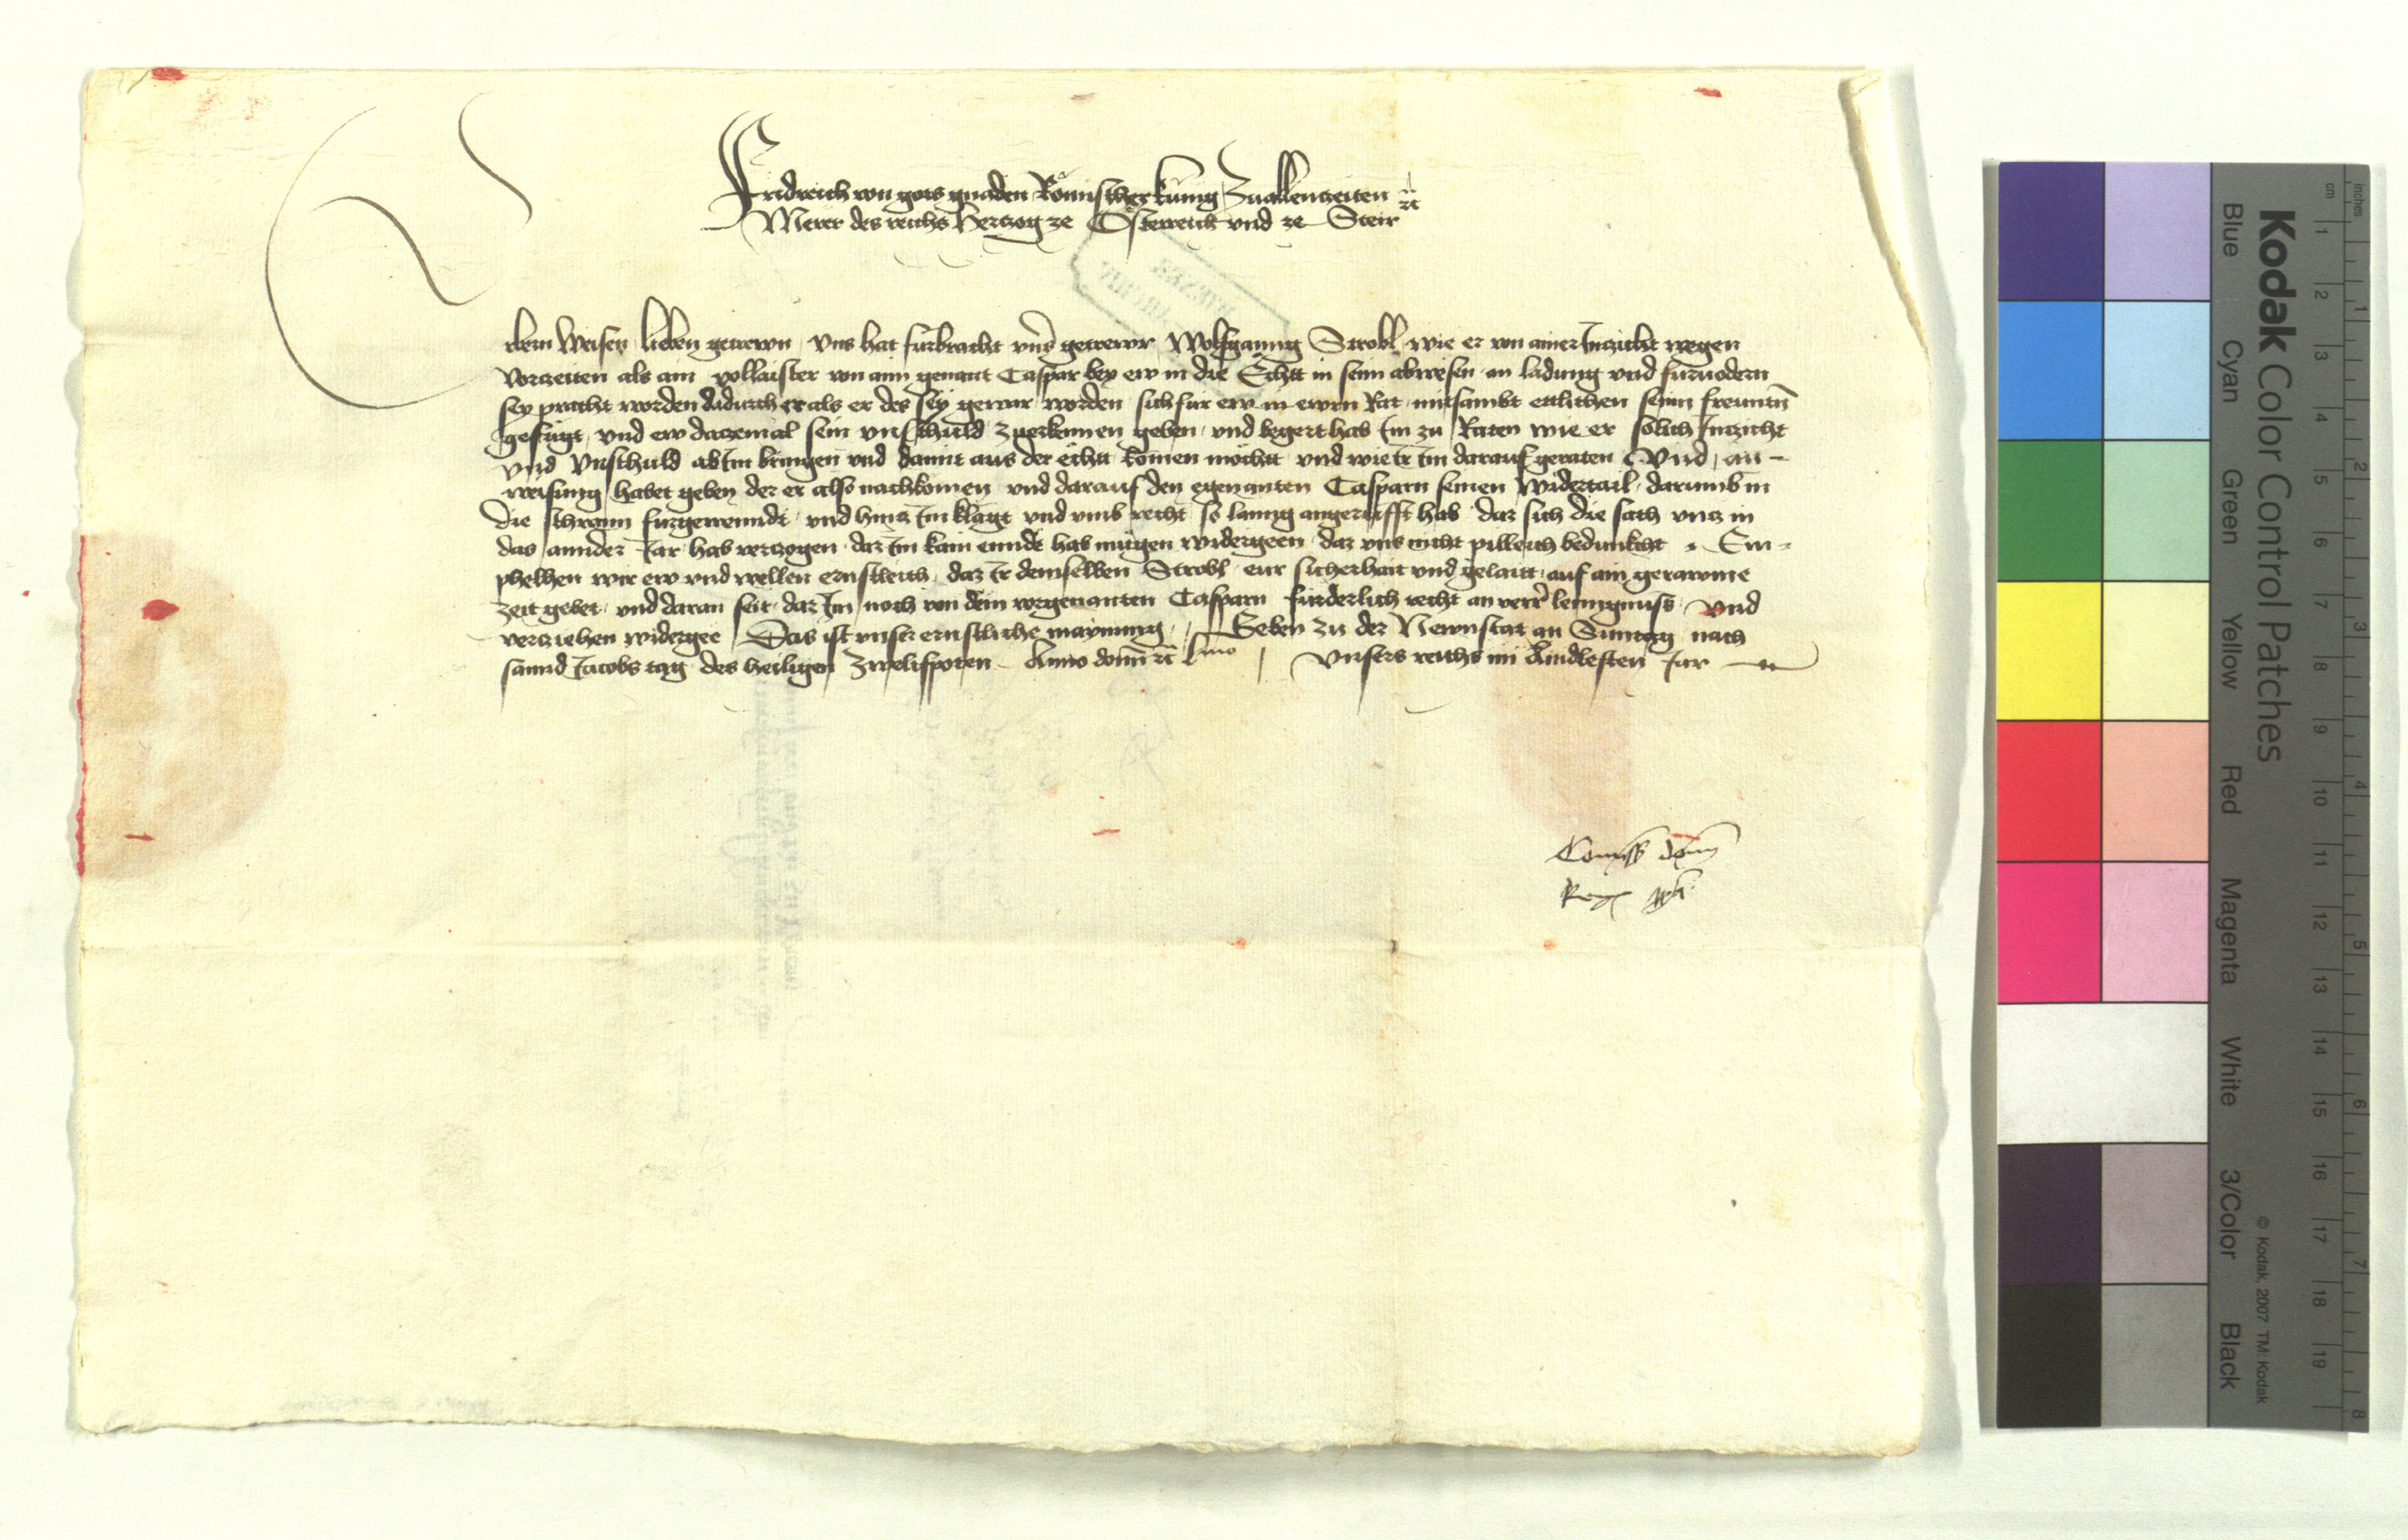 Fridreich von gots gnaden Römischer kunig Zuallenczeiten
Merer des reichs Herczog ze Österreich vnd ze Steir etc
rbern Weisen lieben getrewn Vns hat furbracht vnsr getrewr Wolfganng Strobl wie er von ainer Inczicht wegen
vorczeiten als ain vollaister von aim genant Caspar bey ew in die Echtt in seim abwesen an ladung vnd furuodern
sey pracht worden dadurch er als er des sey gewar worden sich fur ew in ewrn Rat mitsambt ettlichen seinn frewntn
gefugt vnd ew daczemal sein vnschuld zuerkennen geben vnd begert hab Im zu Raten wie er solich Inczicht
vnd Vnschuld ab Im bringen vnd damit aus der echtt komen möchtt vnd wie Ir Im darauf geraten Vnd an-
weisung habet geben der er also nachkomen vnd darauf den egenanten Casparn seinen widertail darumb in
die schrann furgewenndt vnd hincz Im klagt vnd vmb recht so lanng angerufft hab daz sich die sach vncz in
das annder Jar hab verczogen daz Im kain ennde hab mugen widergeen daz vns nicht pilleich bedunkcht Em-
phelhen wir ew vnd wellen ernstleich daz Ir demselben Strobl eur sicherhait vnd gelaitt auf ain gerawme
zeit gebet vnd daran seit daz Im noch von dem vorgenanten Casparn furderlich recht an verrer lenngnuss vnd
verziehen widergee Das ist vnser ernstliche maynung Geben zu der Newnstat an Sunntag nach
sannd Jacobs tag des heiligen Zwelifpoten Anno domini etc Lmo Vnsers reichs im Aindleften Jar
Comissio domini
Regis ppa
Kodak Color Control Patches
Blue Cyan Green Yellow Red Magenta White 3/Color Black
© Kodak, 2007 TM: Kodak
cm 1 2 3 4 5 6 7 8 9 10 11 12 13 14 15 16 17 18 19
inches 1 2 3 4 5 6 7 8